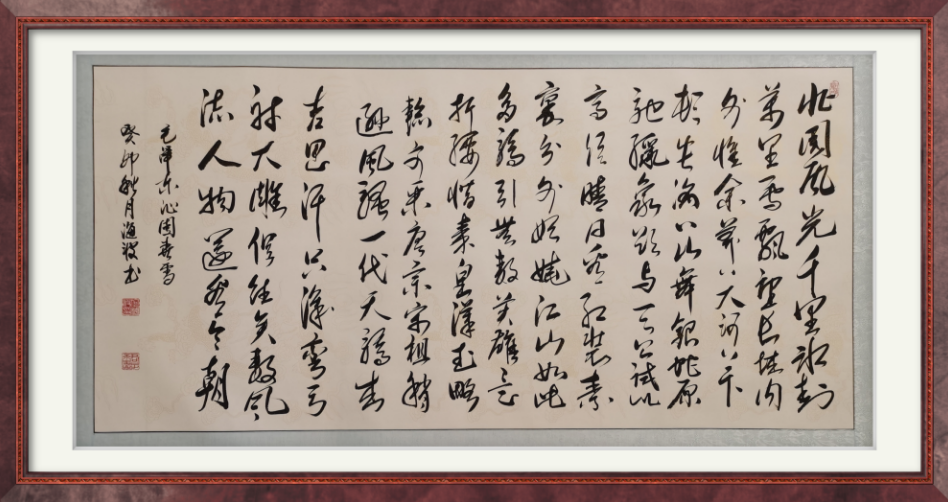 北国風光千里冰封
萬里雪飄望长城内
外惟余莽々大河上下
顿失滔々山舞銀蛇原
驰蠟象欲与天公試比
高須晴日看红装素
裹分外妖娆江山如此
多嬌引無数英雄竞
折腰惜秦皇漢武略
输文采唐宗宋祖稍
遜風骚一代天骄成
吉思汗只識弯弓
射大雕俱往矣数風
流人物還看今朝
毛泽东沁園春雪
癸卯秋月书